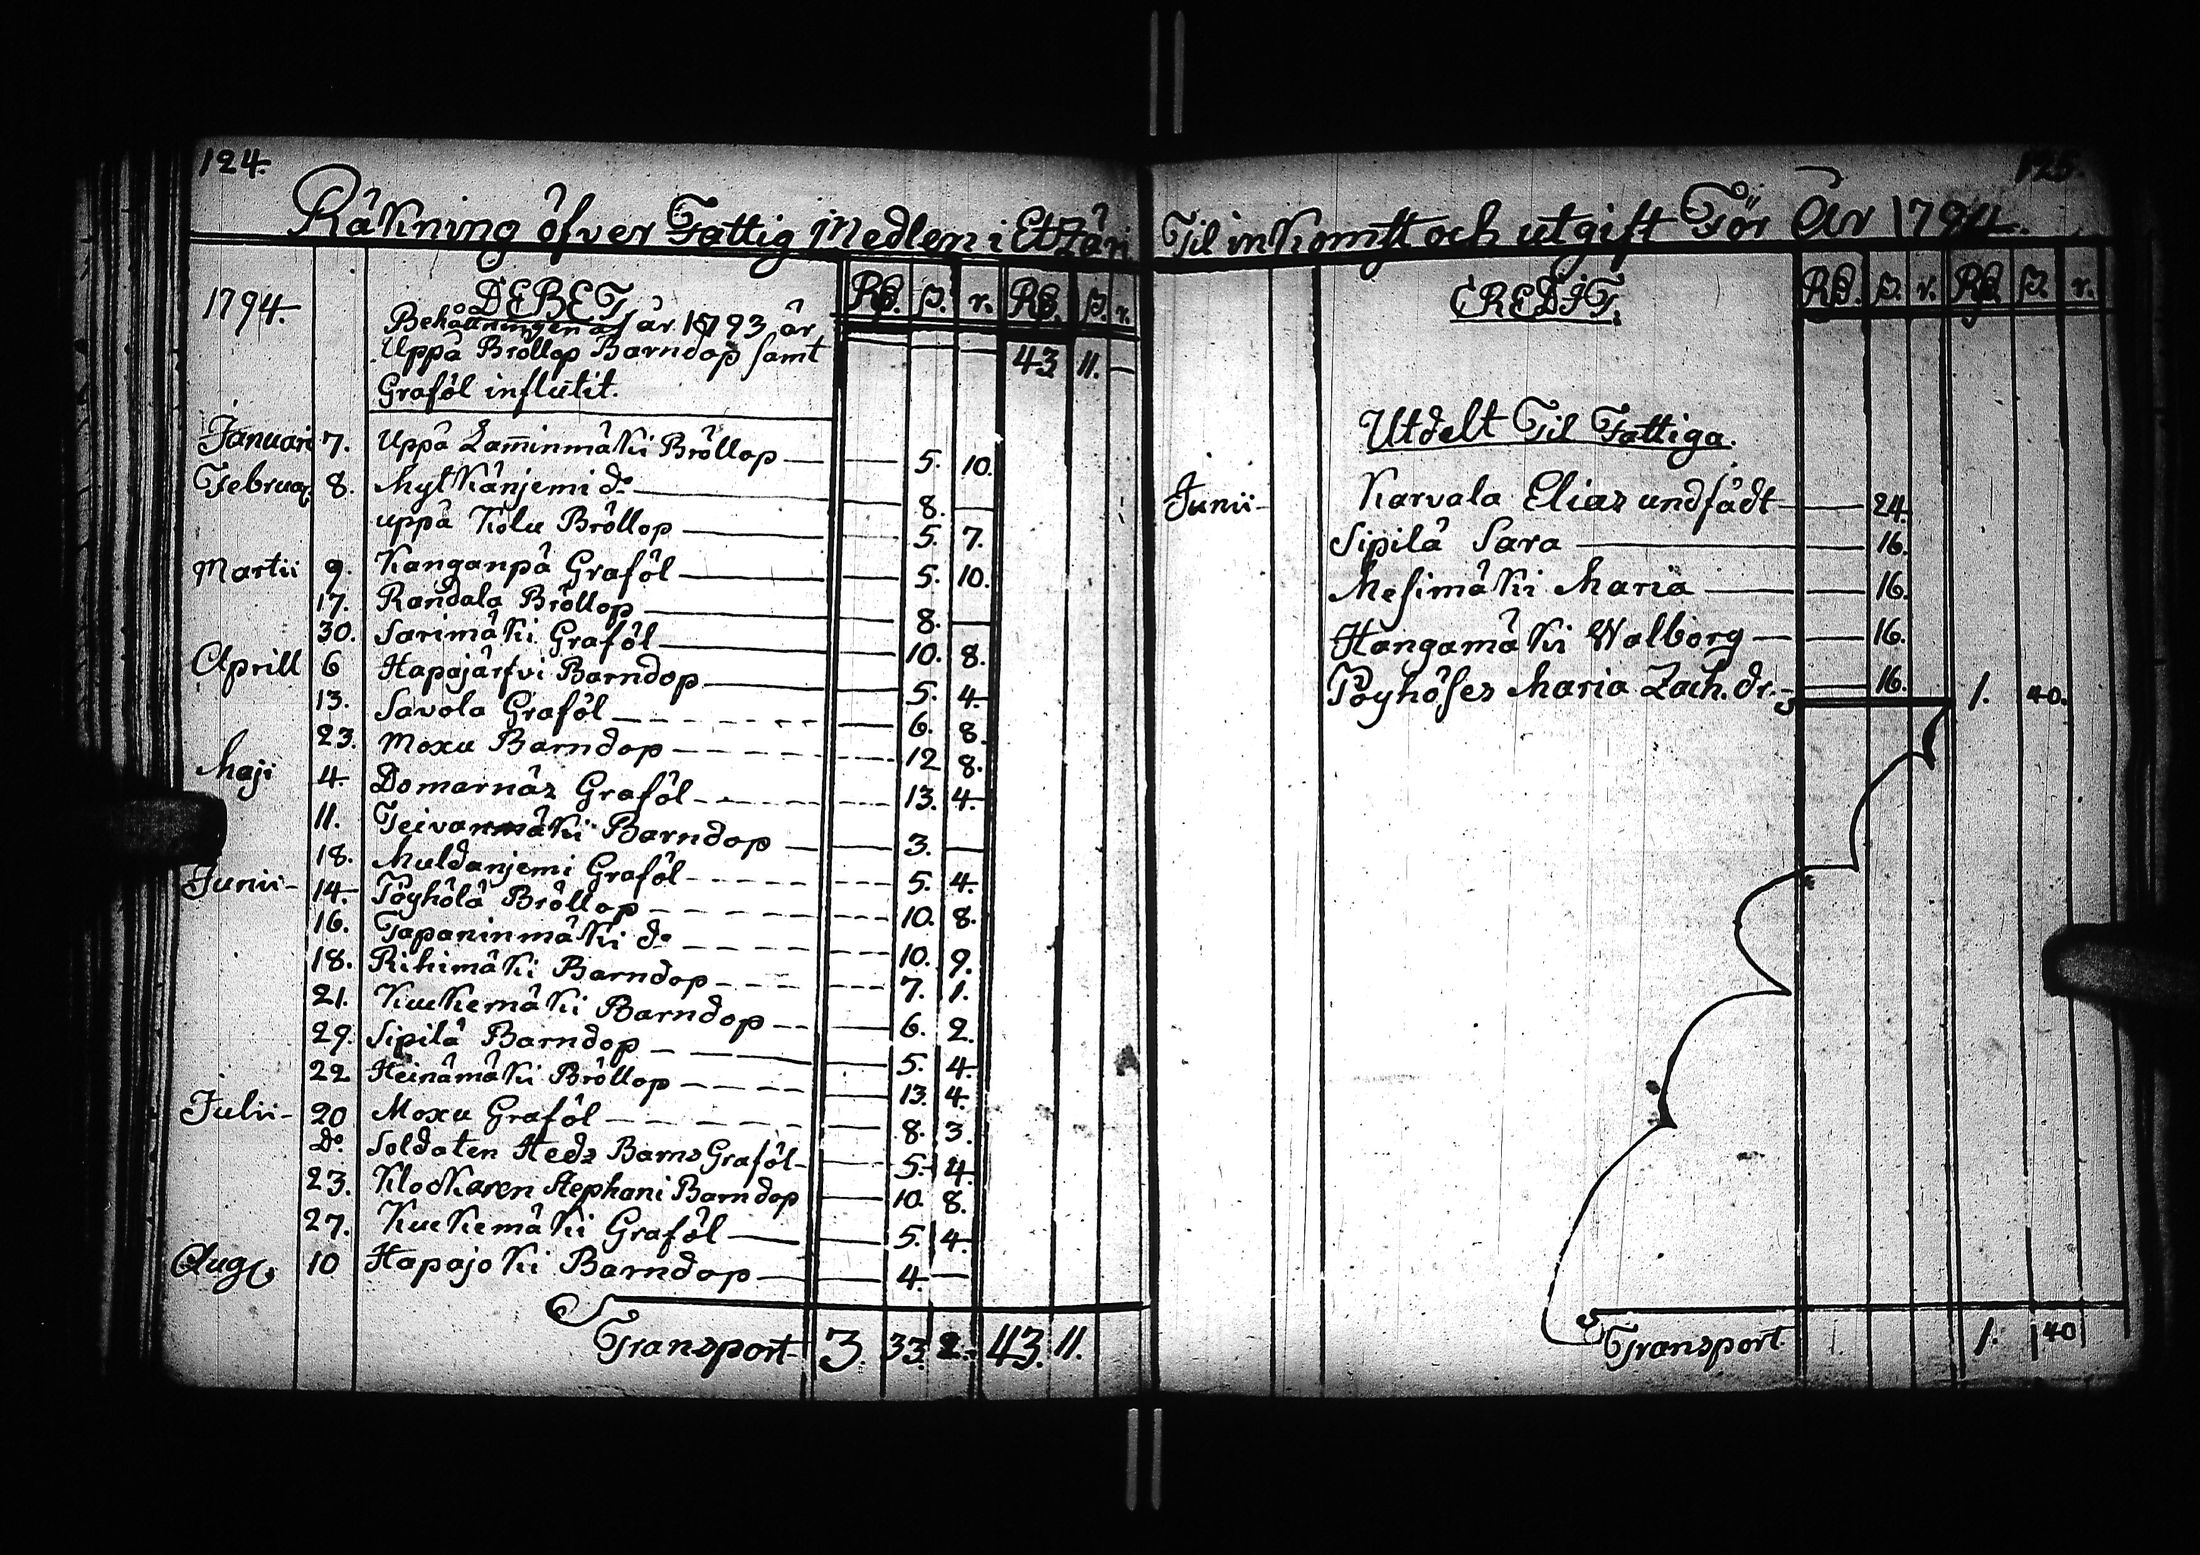 124.
Räkning öfver Fattig Medlen i Etzäri
1794. DEBET. RD. ß. r. RD. ß. r.
Behållningen af år 1793 är
Uppå Bröllop Barndop samt 43 11. —
Graföl influtit.
Januari 7. Uppå Lam̄inmäki Bröllop — — 5. 10.
Februa. 8. Mylkänjemi do — — 8. —
uppå Kolu Bröllop — — 5. 7.
Martii 9. Kanganpä Graföl — — 5. 10.
17. Randala Bröllop — — 8. —
30. Sarimäki Graföl — — 10. 8.
Aprill 6 Hapajärfvi Barndop — — 5. 4.
13. Savola Graföl — — 6. 8.
23. Moxu Barndop — — 12 8.
Maji 4. Domarnäs Graföl — — 13. 4.
11. Teivanmäki Barndop — — 3. —
18. Muldanjemi Graföl — — 5. 4.
Junii — 14. Pöyhölä Bröllop — — 10. 8.
16. Tapaninmäki do — — 10. 9.
18. Rihimäki Barndop — — 7. 1.
21. Kuckemäki Barndop — — 6. 2.
29. Sipilä Barndop — — 5. 4.
22 Heinämäki Bröllop — — 13. 4.
Julii — 20 Moxu Graföl — — 8. 3.
Do. Soldaten Heds Barns Graföl — — 5. 4.
23. Klockaren Stephani Barndop — 10. 8.
27. Kuckemäki Graföl — — 5. 4.
Aug. 10 Hapajoki Barndop — — 4. —
Transport — 3. 33. 2. 43. 11.
125.
Til inkomst och utgift För År 1794.
CREDIT. RD. ß. r. RD. ß. r.
Utdelt Til Fattiga.
Junii — Karvala Elias undfådt — — 24.
Sipilä Sara — — 16.
Mesimäki Maria — — 16.
Hangamäki Walborg — — 16.
Pöyhöses Maria Zach. dr. — — 16. 1. 40.
Transport 1. 40